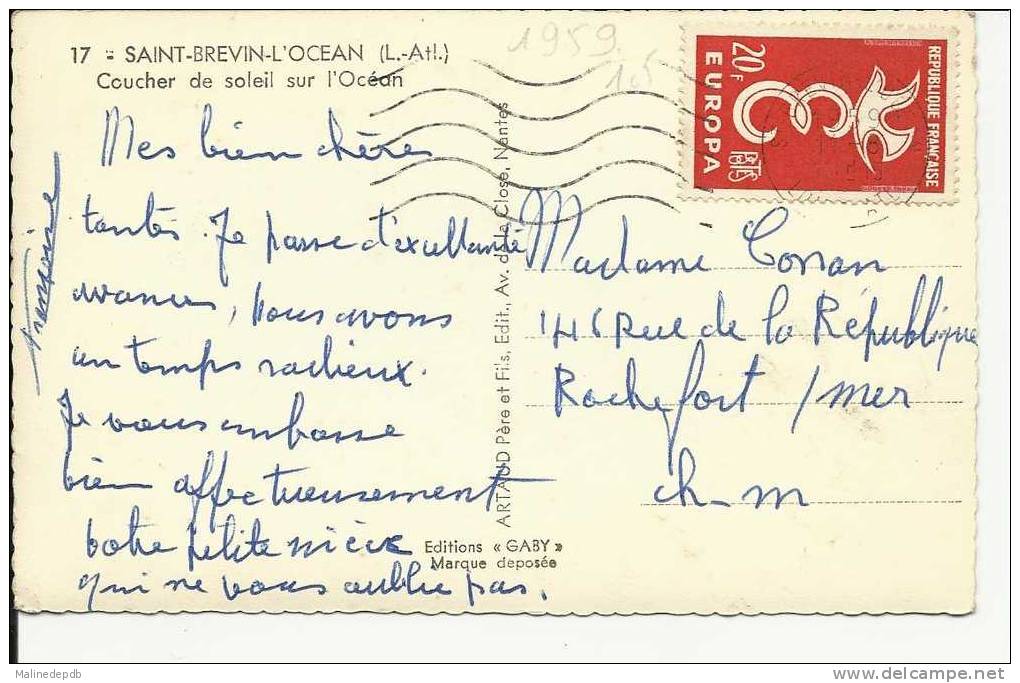 17 - SAINT-BREVIN-L'OCEAN (L.-Atl.)
Coucher de soleil sur l'Océan
1959
105
Mes bien chères
tantes. Je passe d'excellentes
vacances, nous avons
un temps radieux.
Je vous embrasse
bien affectueusement
votre petite nièce
qui ne vous oublie pas.
Françoise
ARTAUD Père et Fils, Edit., Av. de la Close, Nantes
Editions « GABY »
Marque deposée
REPUBLIQUE FRANÇAISE
20F
EUROPA
POSTES
Madame Conan
146 Rue de la République
Rochefort / mer
ch-m
Malinedepdb
delcampe.net